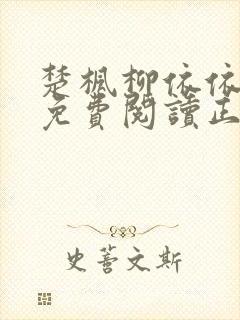 楚楓柳依依
免費閱讀正
史蒼文斯